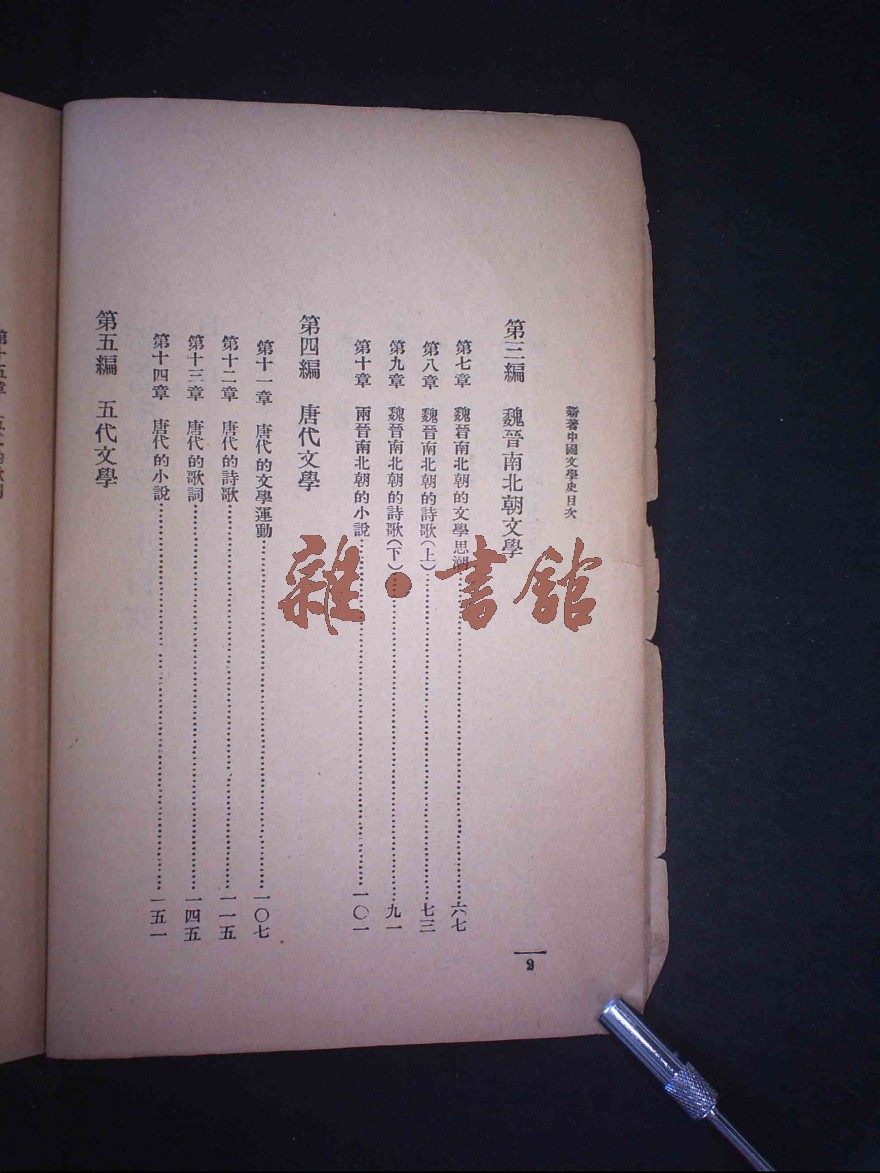 新著中國文學史目次
第三編 魏晉南北朝文學
第七章 魏晉南北朝的文學思潮……六七
第八章 魏晉南北朝的詩歌(上)……七三
第九章 魏晉南北朝的詩歌(下)……九一
第十章 兩晉南北朝的小說……一〇一
第四編 唐代文學
第十一章 唐代的文學運動……一〇七
第十二章 唐代的詩歌……一一五
第十三章 唐代的歌詞……一四五
第十四章 唐代的小說……一五一
第五編 五代文學
2
雜·書館